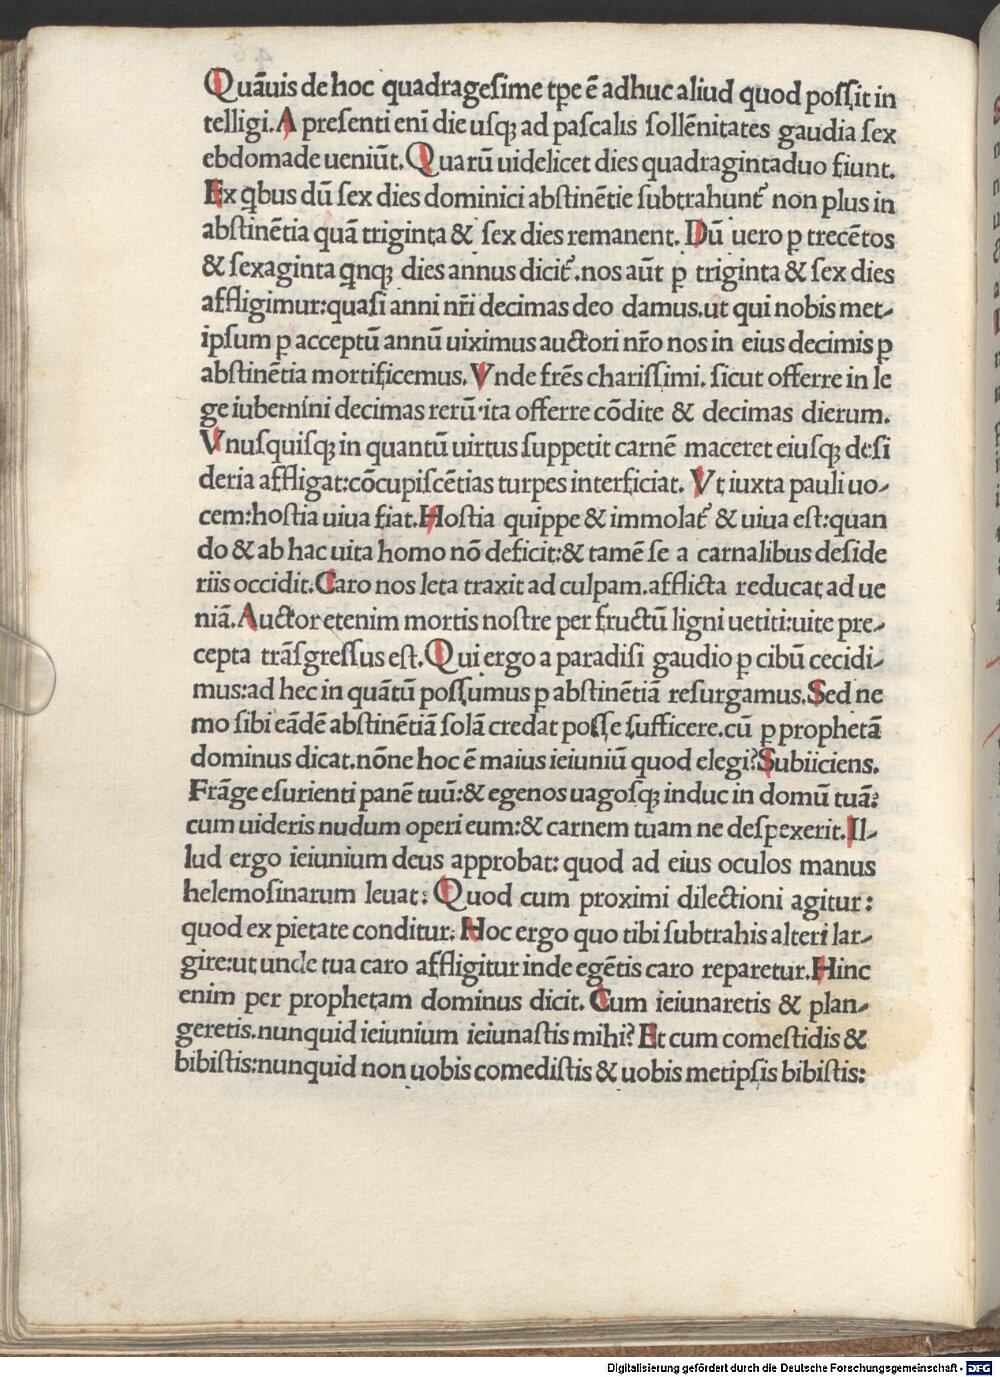 Quāuis de hoc quadrageſime tp̄e ē adhuc aliud quod poſſit in
telligi. A preſenti eni die uſqꝫ ad paſcalis ſollēnitates gaudia ſex
ebdomade ueniūt. Quarū uidelicet dies quadragintaduo fiunt.
Ex qbus dū ſex dies dominici abſtinētie ſubtrahunt᷑ non plus in
abſtinētia quā triginta & ſex dies remanent. Dū uero ꝑ trecētos
& ſexaginta qnqꝫ dies annus dicit᷑. nos aūt ꝑ triginta & ſex dies
affligimur: quaſi anni nr̄i decimas deo damus. ut qui nobis met-
ipſum ꝑ acceptū annū uiximus auctori nr̄o nos in eius decimis ꝑ
abſtinētia mortificemus. Vnde frēs chariſſimi. ſicut offerre in le
ge iubemini decimas rerū ita offerre cōdite & decimas dierum.
Vnuſquiſqꝫ in quantū uirtus ſuppetit carnē maceret eiuſqꝫ deſi
deria affligat: cōcupiſcētias turpes interficiat. Vt iuxta pauli uo-
cem: hoſtia uiua fiat. Hoſtia quippe & immolat᷑ & uiua eſt: quan
do & ab hac uita homo nō deficit: & tamē ſe a carnalibus deſide
riis occidit. Caro nos leta traxit ad culpam. afflicta reducat ad ue
niā. Auctor etenim mortis noſtre per fructū ligni uetiti: uite pre-
cepta trāſgreſſus eſt. Qui ergo a paradiſi gaudio ꝑ cibū cecidi-
mus: ad hec in quātū poſſumus ꝑ abſtinētiā reſurgamus. Sed ne
mo ſibi eādē abſtinētiā ſolā credat poſſe ſufficere. cū ꝑ prophetā
dominus dicat. nōne hoc ē maius ieiuniū quod elegi? Subiiciens.
Frāge eſurienti panē tuū: & egenos uagoſqꝫ induc in domū tuā:
cum uideris nudum operi eum: & carnem tuam ne deſpexerit. Il-
lud ergo ieiunium deus approbat: quod ad eius oculos manus
helemoſinarum leuat: Quod cum proximi dilectioni agitur:
quod ex pietate conditur. Hoc ergo quo tibi ſubtrahis alteri lar-
gire: ut unde tua caro affligitur inde egētis caro reparetur. Hinc
enim per prophetam dominus dicit. Cum ieiunaretis & plan-
geretis. nunquid ieiunium ieiunaſtis mihi? Et cum comeſtidis &
bibiſtis: nunquid non uobis comediſtis & uobis metipſis bibiſtis:
Digitalisierung gefördert durch die Deutsche Forschungsgemeinschaft - DFG